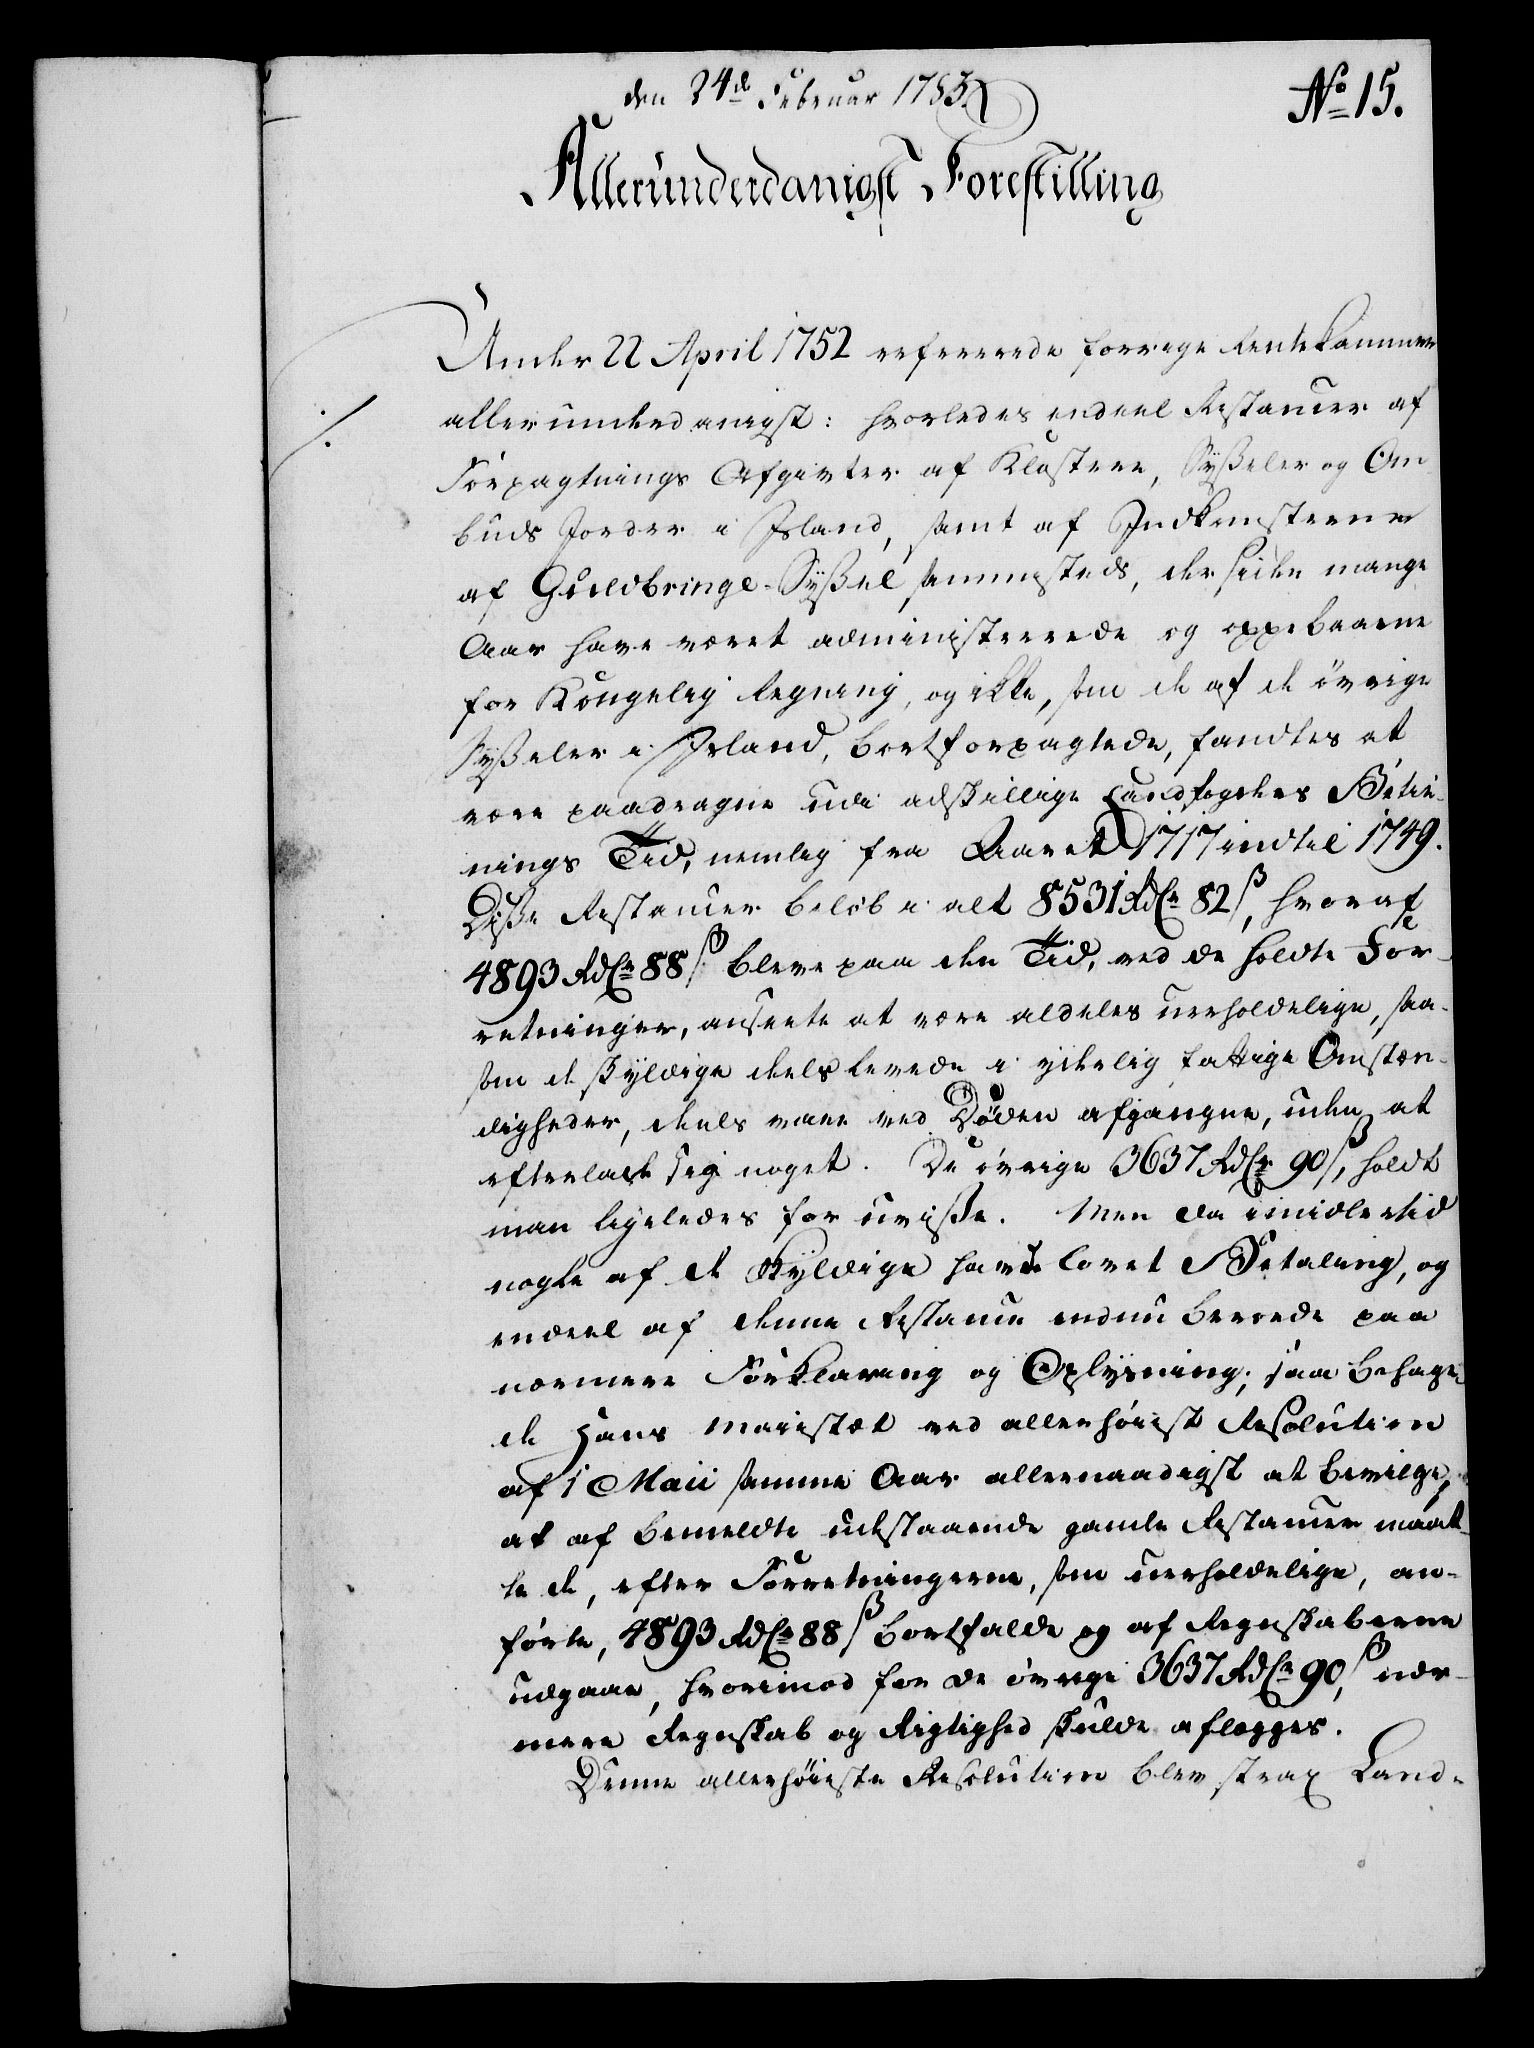 den 24de Februar 1783.
No 15.
Allerunderdanigst Forestilling
Under 22 April 1752 refererede forrige Rentekammer
allerunderdanigst: hvorledes endeel Restancer af
Forpagtnings Afgivter af Klostere, Sysseler og Om
buds Jorder i Island, samt af Indkomsterne
af Guldbringe-Syssel sammesteds, der siden mange
Aar have været administrerede og oppebaarne
for Kongelig Regning, og ikke, som de af de övrige
Sysseler i Island, bortforpagtede, fandtes at
være paadragne udi adskillige Landfogeders Betie-
nings Tid, nemlig fra Aaret 1717 indtil 1749.
Disse Restancer belöb i alt 8531 RdCr 82 ß, hvoraf
4893 RdCr 88 ß bleve paa den Tid, ved de holdte For-
retninger, ansete at være aldeles uerholdelige, saa-
som de skyldige deels levede i yderlig fattige Omstæn-
digheder, deels vare ved Döden afgangne, uden at
efterlade sig noget. De övrige 3637 RdCr 90 ß, holdt
man ligeledes for uvisse. Men da imidlertid
nogle af de skyldige havde lovet Betaling, og
endeel af denne Restance endnu beroede paa
nærmere Forklaring og Oplysning; saa behage
de Hans Maiestæt ved allerhöiest Resolution
af 1 Maii samme Aar allernaadigst at bevilge,
at af bemeldte udestaaende gamle Restancer maat
te de, efter Forretningerne, som uerholdelige, an-
förte, 4893 RdCr 88 ß bortfalde og af Regnskaberne
udgaae, hvorimod for de övrige 3637 RdCr 90 ß, nær-
mere Regnskab og Rigtighed skulde aflægges.
Denne allerhöieste Resolution blev strax Land-